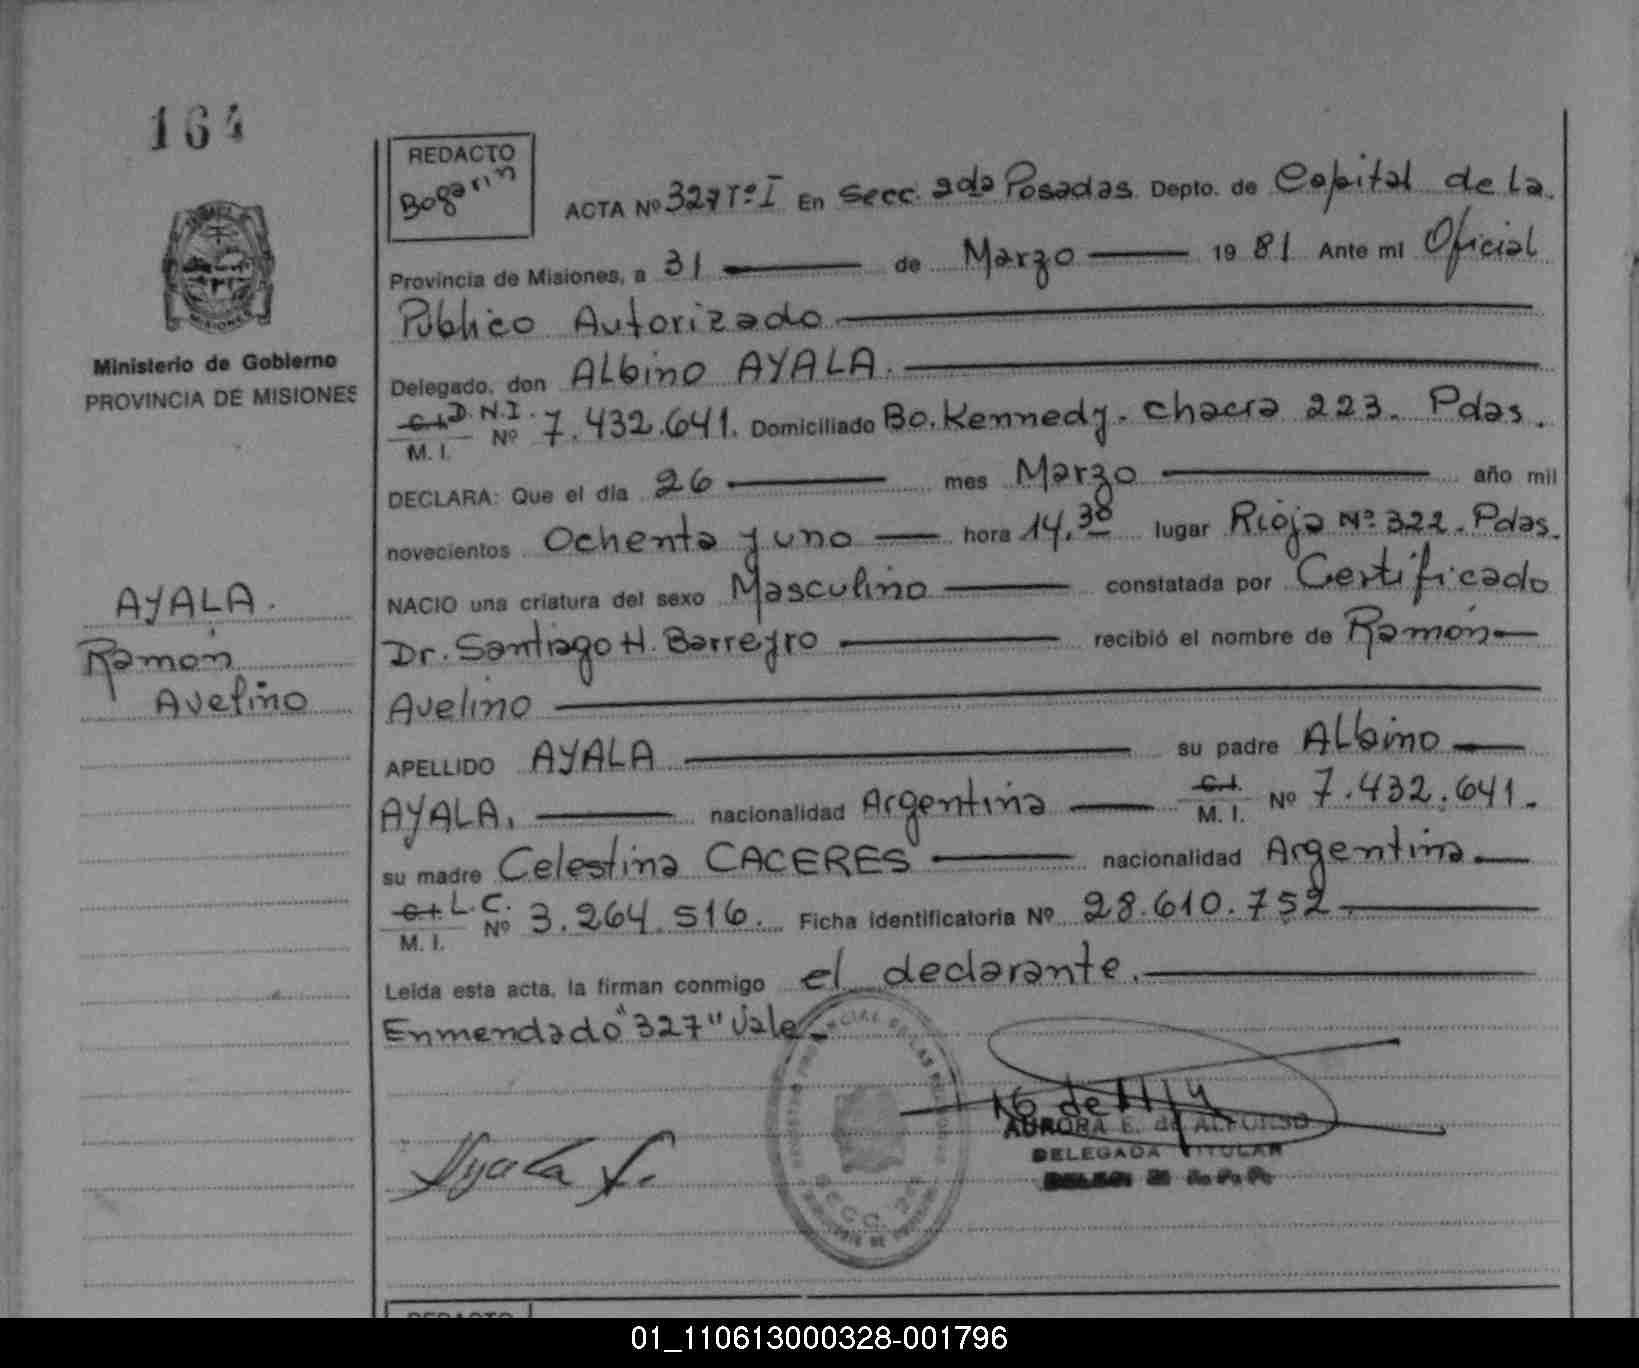 164
REDACTO
Bogarin
ACTA Nº 327 Tº I En Secc. 2da Posadas. Depto. de Capital de La.
Provincia de Misiones, a 31 de Marzo 19 81 Ante mi Oficial
Público Autorizado
Delegado, don Albino AYALA.
C.I. D.N.I. Nº 7.432.641. Domiciliado Bo. Kennedy. chacra 223. Pdas.
M. I.
DECLARA: Que el día 26 mes Marzo año mil
novecientos Ochenta y uno hora 14,30 lugar Rioja Nº 322. Pdas.
NACIO una criatura del sexo Masculino constatada por Certificado
Dr. Santiago H. Barreyro recibió el nombre de Ramón
Avelino
APELLIDO AYALA su padre Albino
AYALA, nacionalidad Argentina C.I. M. I. Nº 7.432.641.
su madre Celestina CACERES nacionalidad Argentina
C.I. L.C. Nº 3.264.516. Ficha identificatoria Nº 28.610.752.
M. I.
Leída esta acta, la firman conmigo el declarante.
Enmendado "327" Vale
Ayala
AURORA E. de ALFONSO
DELEGADA TITULAR
SECC. 2da
Ministerio de Gobierno
PROVINCIA DE MISIONES
MISIONES
AYALA.
Ramón
Avelino
REDACTO
01_110613000328-001796